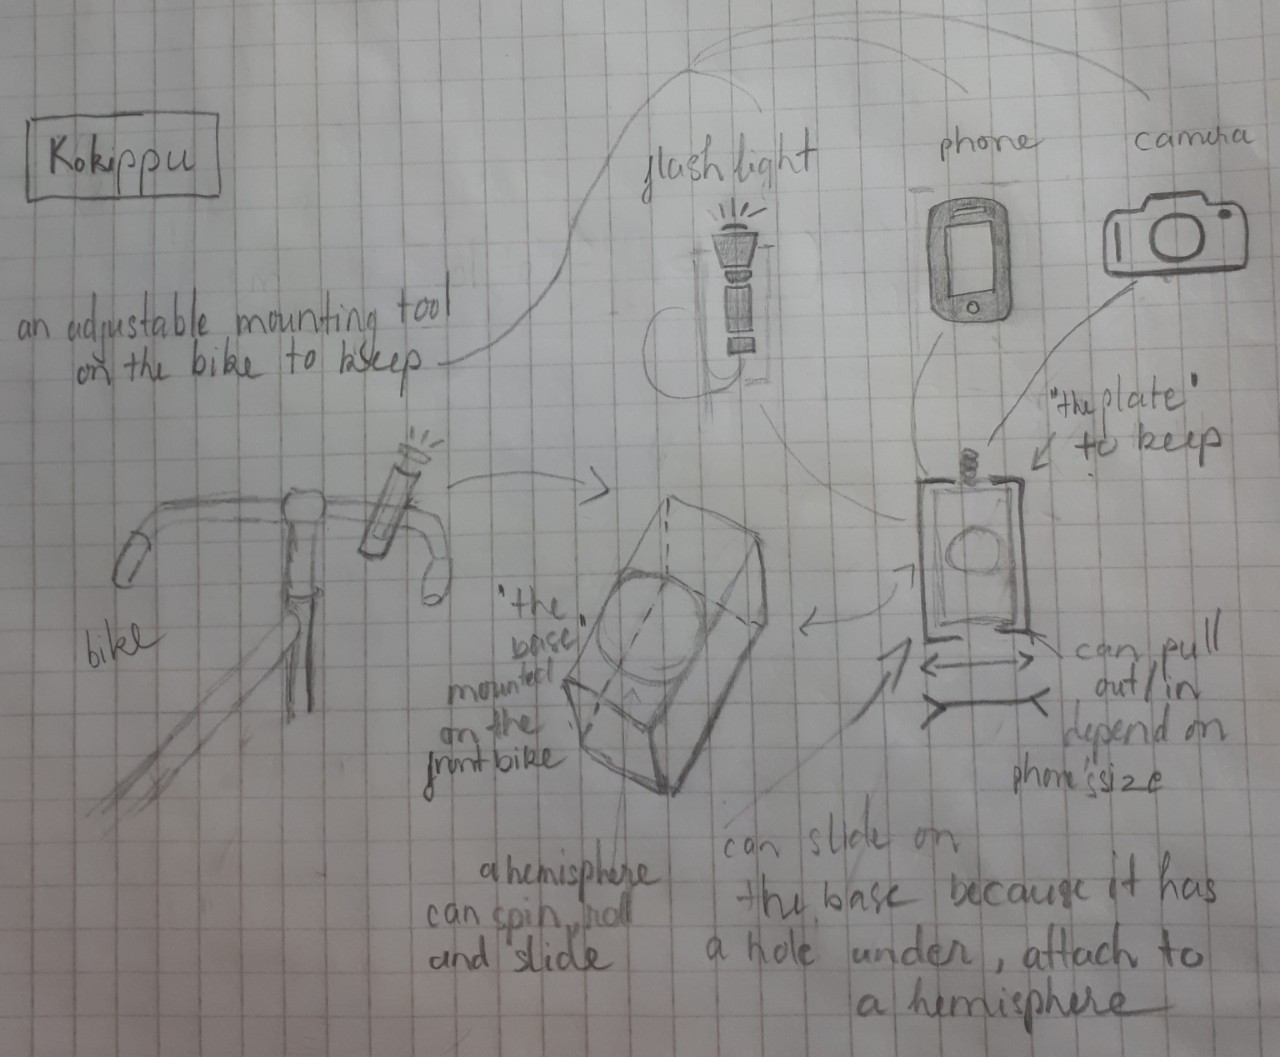 Kokippu
an adjustable mounting tool
on the bike to keep
flash light
phone
camera
"the plate"
to keep
bike
"the
base"
mounted
on the
front bike
can pull
out/in
depend on
phone's size
a hemisphere
can spin, roll
and slide
can slide on
the base because it has
a hole under, attach to
a hemisphere